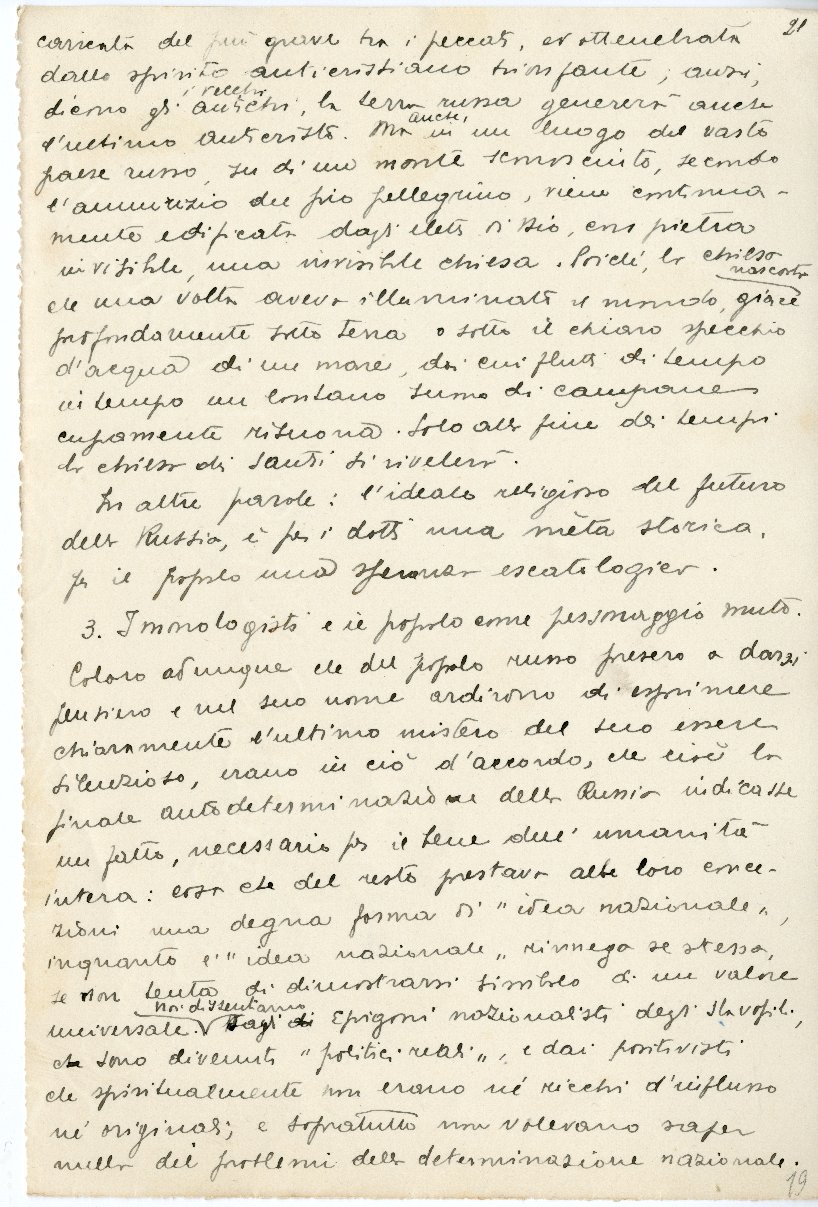 21
caricata del più grave tra i peccati, ed ottenebrata
dallo spirito anticristiano trionfante; anzi,
i vecchi
dicono gli antichi, la terra russa genererà anche
l'ultimo anticristo. Ma anche, in un luogo del vasto
paese russo, su di un monte sconosciuto, secondo
l'annunzio del pio pellegrino, viene continua-
mente edificata dagli eletti di Dio, con pietra
invisibile, una invisibile chiesa. Poiché, la chiesa
nascosta
che una volta aveva illuminato il mondo, giace
profondamente sotto terra o sotto il chiaro specchio
d'acqua di un mare, dai cui flutti di tempo
in tempo un lontano suono di campane
cupamente risuona. Solo alla fine dei tempi
la chiesa dei Santi si rivelerà.
In altre parole: l'ideale religioso del futuro
della Russia, è per i dotti una mèta storica,
per il popolo una speranza escatologica.
3. I monologisti e il popolo come personaggio muto.
Coloro adunque che del popolo russo presero a darsi
pensiero e nel suo nome ardirono di esprimere
chiaramente l'ultimo mistero del suo essere
silenzioso, erano in ciò d'accordo, che cioè la
finale autodeterminazione della Russia indicasse
un fatto, necessario per il bene dell'umanità
intera: cosa che del resto prestava alle loro conce-
zioni una degna forma di "idea nazionale",
inquanto l'"idea nazionale" rinnega se stessa,
se non tenta di dimostrarsi simbolo di un valore
noi dissentiamo
universale. Dagli di Epigoni nazionalisti degli Slavofili,
che sono divenuti "politici reali", e dai positivisti
che spiritualmente non erano né ricchi d'influsso
né originali; e sopratutto non volevano saper
nulla del problemi della determinazione nazionale.
19